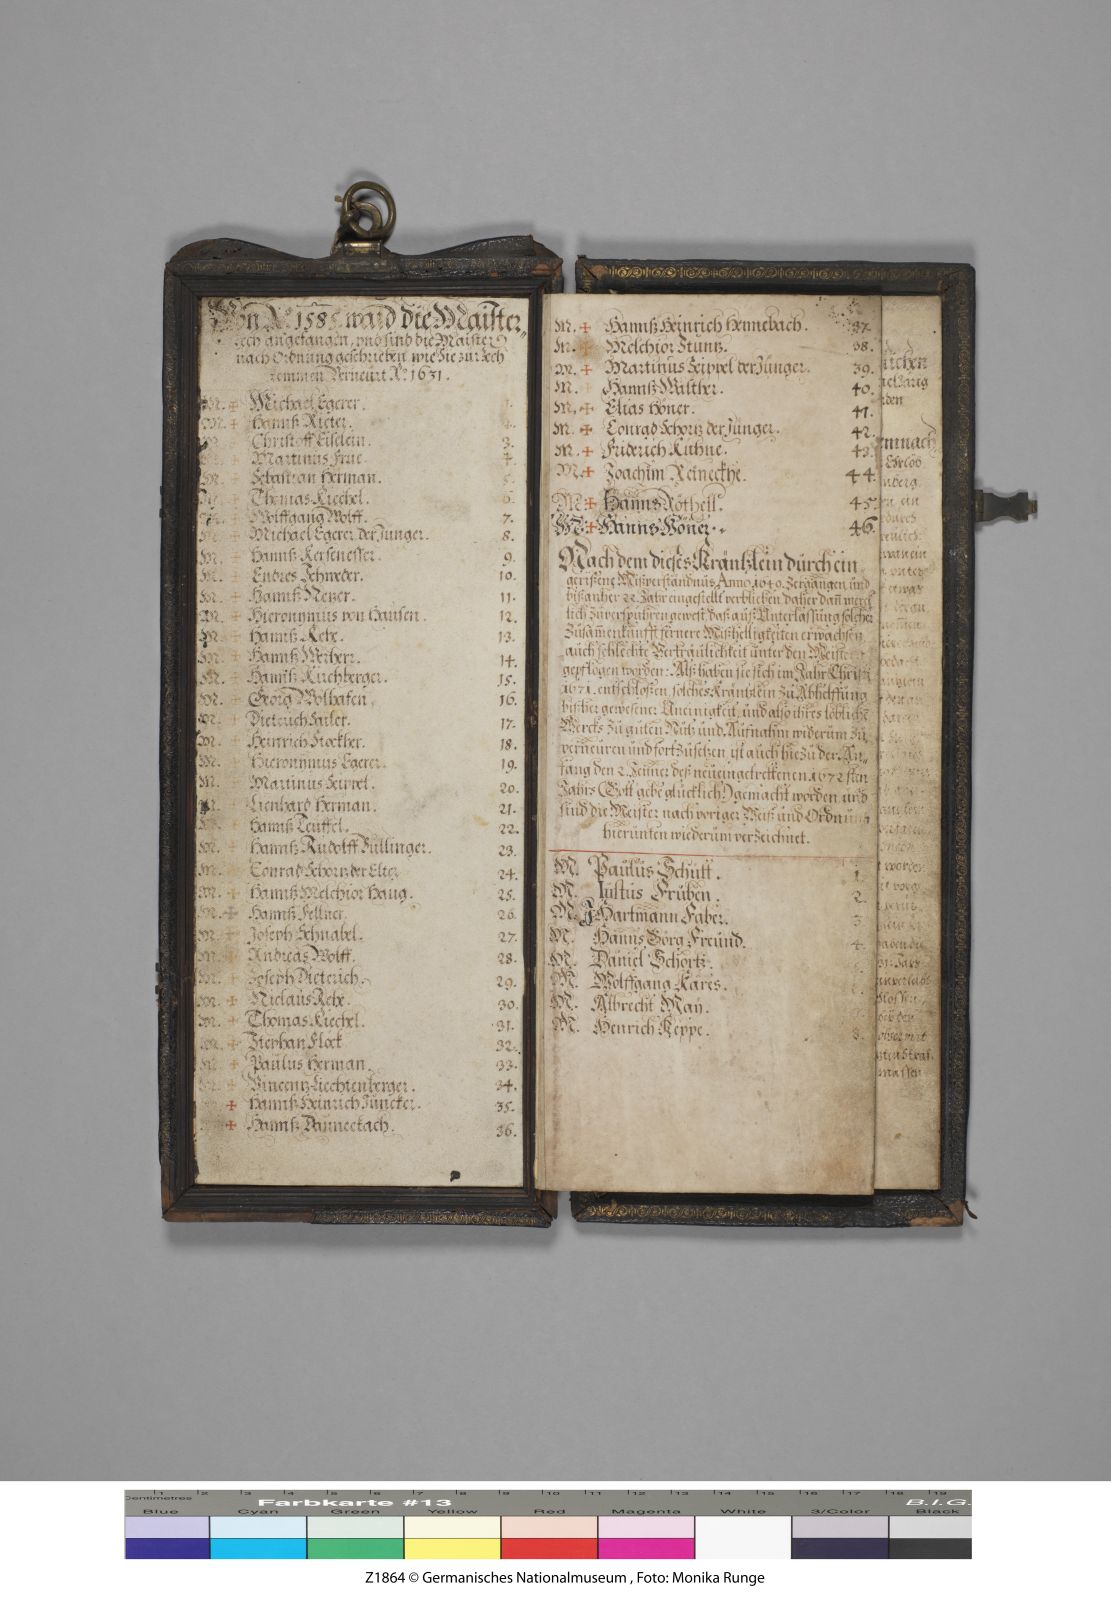 Von Aº 1585. ward die Maister„
Zech angefangen, vnd sind die Maister
nach Ordnung geschrieben wie sie zur Zech
kommen Verneürt Aº 1631.
M. + Michael Egerer. 1.
M. + Hannß Rieter. 2.
M. + Christoff Eislein. 3.
M. + Martinus Frue. 4.
M. + Sebastian Herman. 5.
M. + Thomas Kiechel. 6.
M. + Wolffgang Wolff. 7.
M. + Michael Egerer der Jünger. 8.
M. + Hannß Kersenesser. 9.
M. + Endres Schweder. 10.
M. + Hannß Neyer. 11.
M. + Hieronymus von Hausen. 12.
M. + Hannß Rehe. 13.
M. + Hannß Werherr. 14.
M. + Hannß Kirchberger. 15.
M. + Georg Wolhafen. 16.
M. + Dieterich Sailer. 17.
M. + Heinrich Stockher. 18.
M. + Hieronymus Egerer. 19.
M. + Martinus Seippel. 20.
M. + Lienhard Herman. 21.
M. + Hannß Teuffel. 22.
M. + Hannß Rudolff Füllinger. 23.
M. + Conrad Schortz der Elter. 24.
M. + Hannß Melchior Haug. 25.
M. + Hannß Fellner. 26.
M. + Joseph Schnabel. 27.
M. + Andreas Wolff. 28.
M. + Joseph Dieterich. 29.
M. + Niclaus Rehe. 30.
M. + Thomas Kiechel. 31.
M. + Stephan Flock 32.
M. + Paulus Herman. 33.
M. + Vincentz Liechtenberger. 34.
+ Hannß Heinrich Jüncker. 35.
+ Hannß Danneckach. 36.
M. + Hannß Heinrich Hennebach. 37.
M. + Melchior Stuntz. 38.
M. + Martinus Seippel der Jünger. 39.
M. + Hannß Walther. 40.
M. + Elias Höner. 41.
M. + Conrad Schortz der Jünger. 42.
M. + Friderich Kuhne. 43.
M. + Joachim Reineckhe. 44.
M. + Hanns Röthell. 45.
M. + Hanns Höner. 46.
Nach dem dieses Kräntzlein dürch ein
gerißene Mißverständnüs Anno 1649. Zergangen ünd
biß anher 22. Jahr eingestellt verblieben, daher dañ merck
lich zuverspühren gewest, daß auß Unterlassung solcher
Zusamenkünfft fernere Mißhelligkeiten erwachsen
auch schlechte Verträulichkeit ünter den Meistern
gepflogen worden: Alß haben sie sich im Jahr Christi
1671. entschloßen, solches Kräntzlein zu Abhelffüng
bißher gewesener Uneinigkeit, ünd also ihres löblichē
Wercks zu guten Nütz ünd Aufnahm widerüm zu
verneüren ünd fort züsetzen ist auch hiezü der An„
fang den 2. Jenner deß neüeingetrettenen 1672sten
Jahrs (Gott gebe glücklich!) gemacht worden und
sind die Meister nach voriger Weiß und Ordnung
hierünten wiederüm verzeichnet.
M. Paulus Schütt. 1.
M. Justus Früben. 2.
M. J Hartmann Faber. 3
M. Hanns Görg Freünd. 4.
M. Daniel Schortz.
M. Wolffgang Kares.
M. Albrecht May. 7.
M. Henrich Keppe. 8.
Centimetres 1 2 3 4 5 6 7 8 9 10 11 12 13 14 15 16 17 18 19
Farbkarte #13 B.I.G.
Blue Cyan Green Yellow Red Magenta White 3/Color Black
Z1864 © Germanisches Nationalmuseum , Foto: Monika Runge